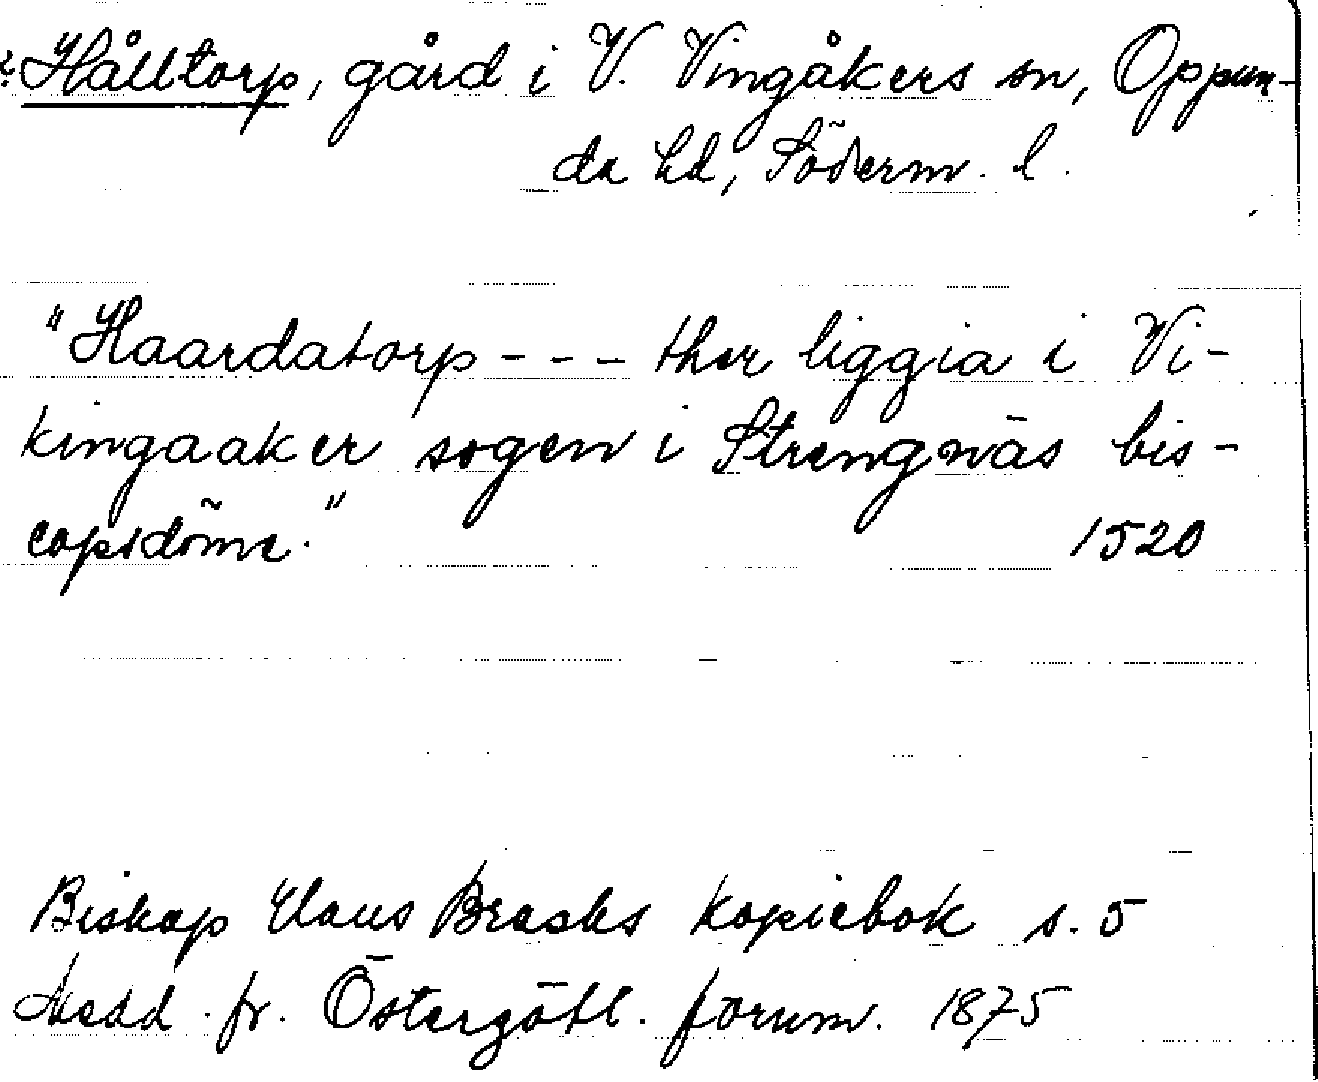 ?: Hålltorp, gård i V. Vingåkers sn, Oppun-
da hd, Söderm. l.
"Haardatorp - - - ther liggia i Vi-
kingaaker sogen i Strengnäs bis-
copsdöme." 1520
Biskop Claus Brasks kopiebok s. 5
Medd. fr. Östergötl. fornm. 1875